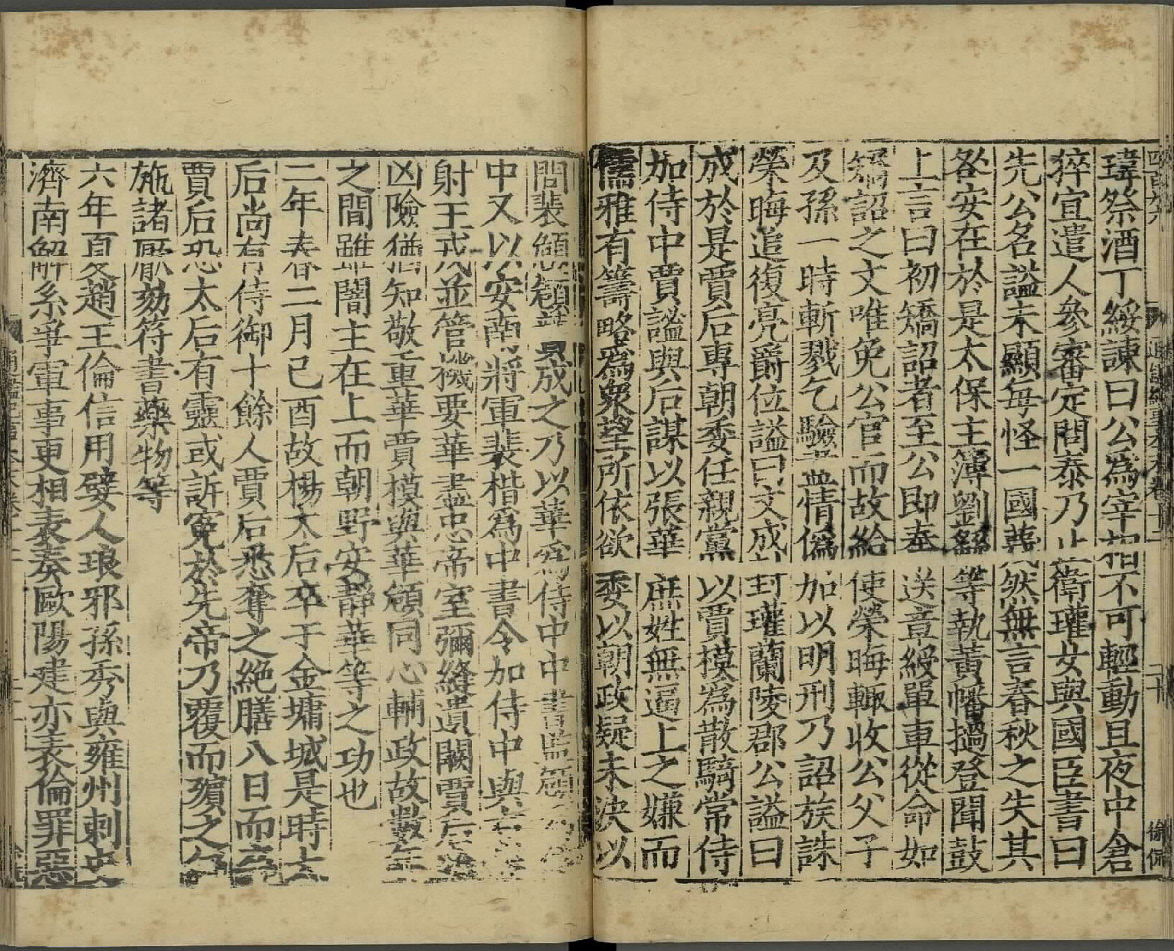 瑋祭酒丁綏諫曰公爲宰相不可輕動且夜中倉
猝宜遣人參審定問泰乃止衛瓘女與國臣書曰
先公名謚未顯每怪一國蔑然無言春秋之失其
咎安在於是太保主簿劉繇等執黃幡撾登聞鼓
上言曰初矯詔者至公即奉送章綬單車從命如
矯詔之文唯免公官而故給使榮晦輙收公父子
及孫一時斬戮乞驗盡情僞加以明刑乃詔族誅
榮晦追復亮爵位謚曰文成封瓘蘭陵郡公謚曰
成於是賈后專朝委任親黨以賈模爲散騎常侍
加侍中賈謐與后謀以張華庶姓無逼上之嫌而
儒雅有籌略爲衆望所依欲委以朝政疑未決以
問裴頠頠贊成之乃以華爲侍中中書監頠
中又以安南將軍裴楷爲中書令加侍中與
射王戎並管機要華盡忠帝室彌縫遺闕賈后
凶險猶知敬重華賈模與華頠同心輔政故數年
之間雖闇主在上而朝野安靜華等之功也
二年春二月己酉故楊太后卒于金墉城是時太
后尚有侍御十餘人賈后悉奪之絶膳八日而
賈后恐太后有靈或訴寃於先帝乃覆而殯之
施諸厭劾符書藥物等
六年夏趙王倫信用嬖人琅邪孫秀與雍州刺史
濟南解系爭軍事更相表奏歐陽建亦表倫罪惡